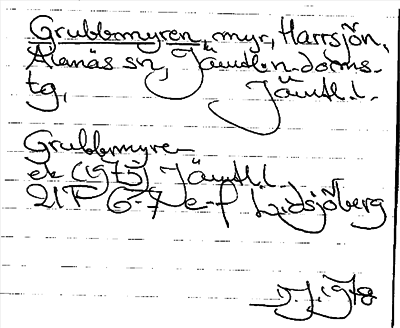 Grubbmyren, myr, Harrsjön,
Alanäs sn, Jämtl. n. doms-
tg, Jämtl. l.
Grubbmyren
ek (1975) Jämtl. l.
21F 6-7 e-f Lidsjöberg
1978